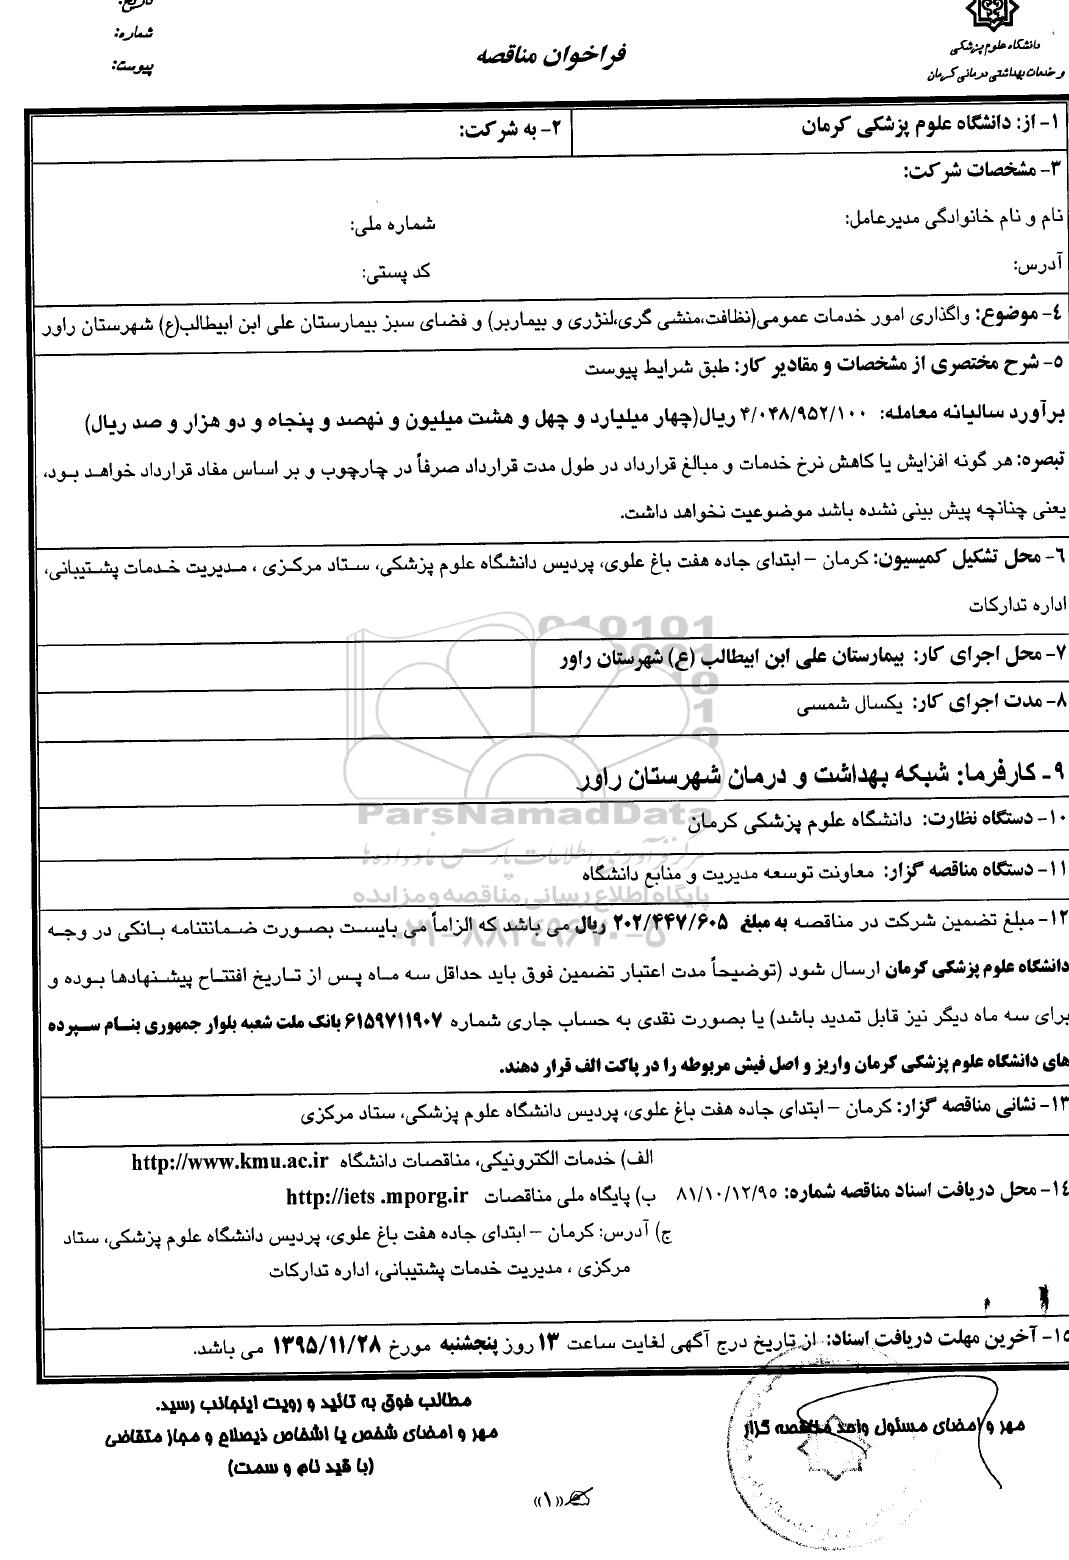 تاریخ:
شماره:
پیوست:
دانشگاه علوم پزشکی
و خدمات بهداشتی درمانی کرمان
فراخوان مناقصه
۱- از: دانشگاه علوم پزشکی کرمان
۲- به شرکت:
۳- مشخصات شرکت:
نام و نام خانوادگی مدیرعامل:
شماره ملی:
آدرس:
کد پستی:
۴- موضوع: واگذاری امور خدمات عمومی(نظافت،منشی گری،لنژری و بیماربر) و فضای سبز بیمارستان علی ابن ابیطالب(ع) شهرستان راور
۵- شرح مختصری از مشخصات و مقادیر کار: طبق شرایط پیوست
برآورد سالیانه معامله: ۴/۰۴۸/۹۵۲/۱۰۰ ریال(چهار میلیارد و چهل و هشت میلیون و نهصد و پنجاه و دو هزار و صد ریال)
تبصره: هر گونه افزایش یا کاهش نرخ خدمات و مبالغ قرارداد در طول مدت قرارداد صرفاً در چارچوب و بر اساس مفاد قرارداد خواهد بود،
یعنی چنانچه پیش بینی نشده باشد موضوعیت نخواهد داشت.
۶- محل تشکیل کمیسیون: کرمان – ابتدای جاده هفت باغ علوی، پردیس دانشگاه علوم پزشکی، ستاد مرکزی ، مدیریت خدمات پشتیبانی،
اداره تدارکات
۷- محل اجرای کار: بیمارستان علی ابن ابیطالب (ع) شهرستان راور
۸- مدت اجرای کار: یکسال شمسی
۹- کارفرما: شبکه بهداشت و درمان شهرستان راور
ParsNamadData
۱۰- دستگاه نظارت: دانشگاه علوم پزشکی کرمان
مرکز فرآوری اطلاعات پارس نماد داده ها
۱۱- دستگاه مناقصه گزار: معاونت توسعه مدیریت و منابع دانشگاه
پایگاه اطلاع رسانی مناقصه و مزایده
۱۲- مبلغ تضمین شرکت در مناقصه به مبلغ ۲۰۲/۴۴۷/۶۰۵ ریال می باشد که الزاماً می بایست بصورت ضمانتنامه بانکی در وجه
۰۲۱-۸۸۳۴۹۶۷۰-۵
دانشگاه علوم پزشکی کرمان ارسال شود (توضیحاً مدت اعتبار تضمین فوق باید حداقل سه ماه پس از تاریخ افتتاح پیشنهادها بوده و
برای سه ماه دیگر نیز قابل تمدید باشد) یا بصورت نقدی به حساب جاری شماره ۶۱۵۹۷۱۱۹۰۷ بانک ملت شعبه بلوار جمهوری بنام سپرده
های دانشگاه علوم پزشکی کرمان واریز و اصل فیش مربوطه را در پاکت الف قرار دهند.
۱۳- نشانی مناقصه گزار: کرمان – ابتدای جاده هفت باغ علوی، پردیس دانشگاه علوم پزشکی، ستاد مرکزی
الف) خدمات الکترونیکی، مناقصات دانشگاه http://www.kmu.ac.ir
۱۴- محل دریافت اسناد مناقصه شماره: ۸۱/۱۰/۱۲/۹۵ ب) پایگاه ملی مناقصات http://iets .mporg.ir
ج) آدرس: کرمان – ابتدای جاده هفت باغ علوی، پردیس دانشگاه علوم پزشکی، ستاد
مرکزی ، مدیریت خدمات پشتیبانی، اداره تدارکات
۱۵- آخرین مهلت دریافت اسناد: از تاریخ درج آگهی لغایت ساعت ۱۳ روز پنجشنبه مورخ ۱۳۹۵/۱۱/۲۸ می باشد.
مطالب فوق به تائید و رویت اینجانب رسید.
مهر و امضای مسئول واحد مناقصه گزار
مهر و امضای شخص یا اشخاص ذیصلاح و مجاز متقاضی
(با قید نام و سمت)
«۱»